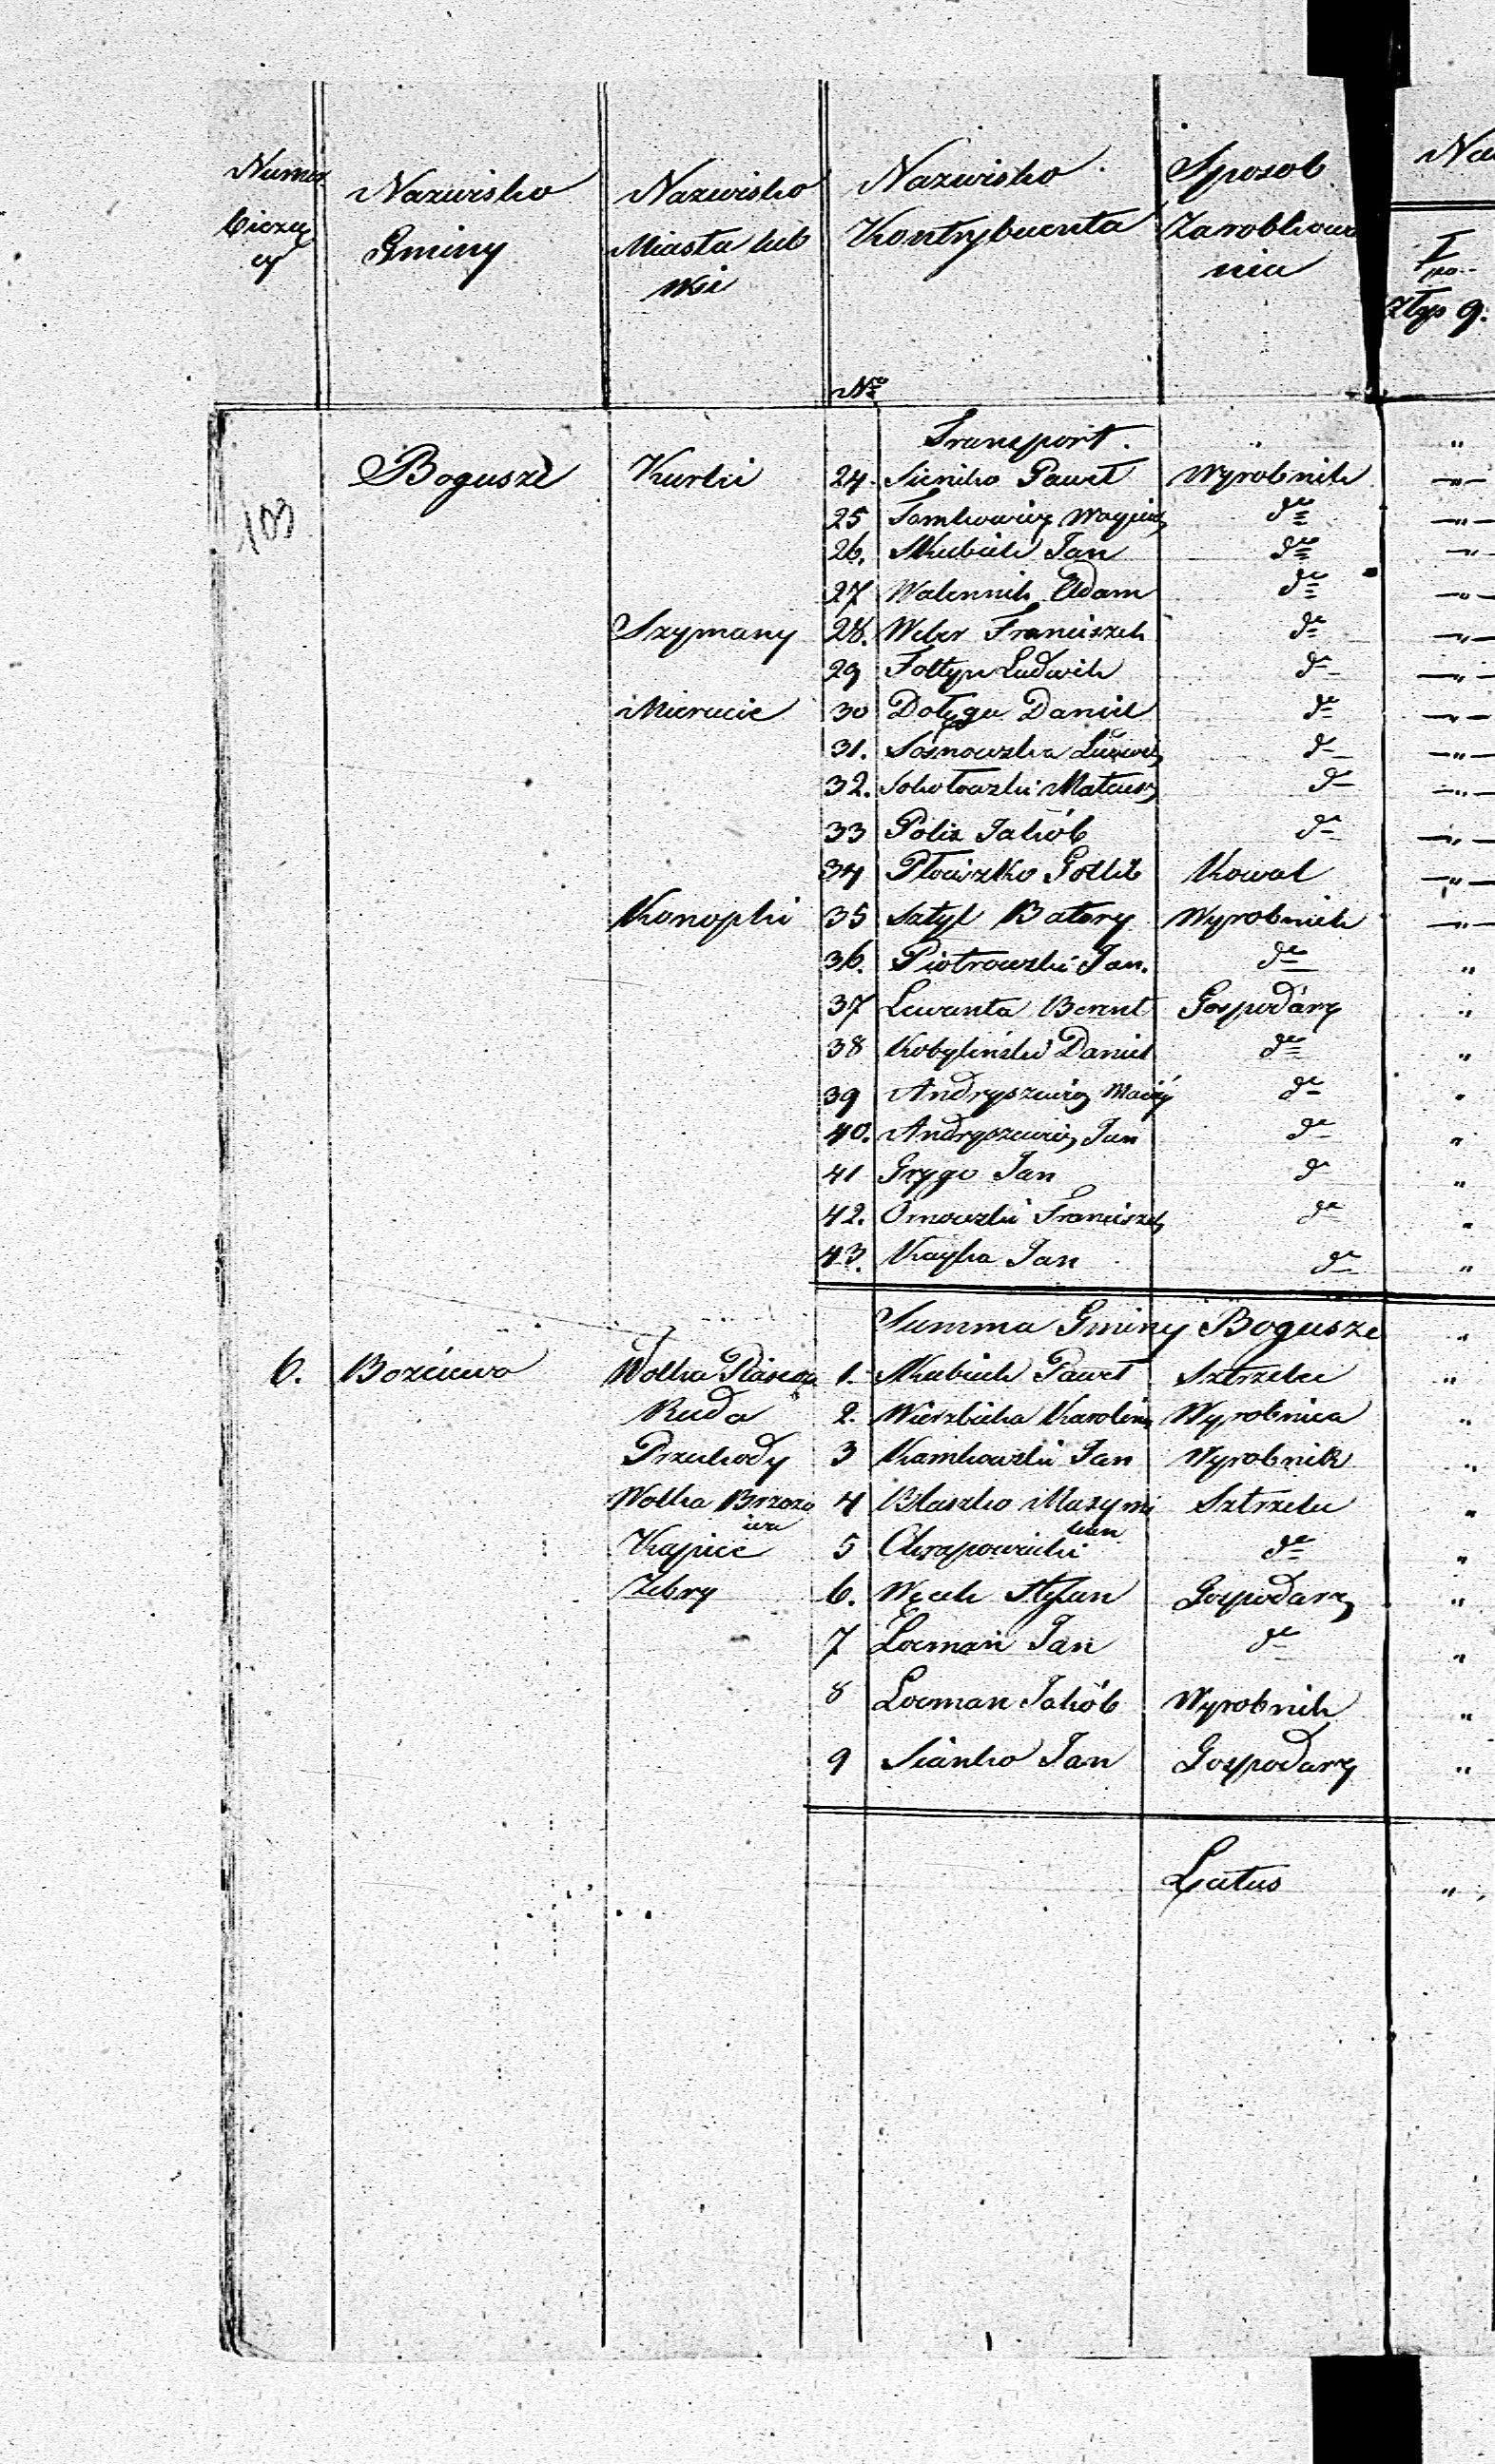 Numer bieżący Nazwisko Gminy Nazwisko Miasta lub Wsi Nazwisko Kontrybuenta Sposob Zarobkowania Na
I
Złp g.
Nro
Transport. " "
Bogusze Kurki 24. Sieńko Paweł Wyrobnik —"—
103
25 Tomkowicz Woyciech do —"—
26. Skubich Jan do —"—
27 Walennik Adam do —"—
Szymany 28. Weber Franciszek do —"—
29 Foltyn Ludwik do —"—
Mierucie 30 Dołęga Daniel do —"—
31. Sosnowska Ludwik do —"—
32. Sokołowski Mateusz do —"—
33 Polix Jakób do —"—
34 Płoiszko Gotlib Kowal —"—
Konopki 35 Sztyl Batory Wyrobnik —"—
36. Piotrowski Jan. do "
37 Lewanta Berent Gospodarz "
38 Kobyliński Daniel do "
39 Andryszewicz Maciej do "
40. Andryszewicz Jan do "
41 Grygo Jan do "
42. Ornowski Franciszek do "
43. Kayka Jan do "
Summa Gminy Bogusze "
6. Bożeiewo Wolka Piaseczn 1. Skubich Paweł Sztrzelec "
Ruda 2. Wierzbicka Karolina Wyrobnica "
Przechody 3 Kamkowski Jan Wyrobnik "
Wolka Brzozo 4 Blaszko Maxymi Sztrzelec "
wa lian
Kapice 5 Chrapowicki do "
Zebry 6. Węcek Stefan Gospodarz "
7 Locman Jan do "
8 Locman Jakób Wyrobnik "
9 Sieńko Jan Gospodarz "
Latus "